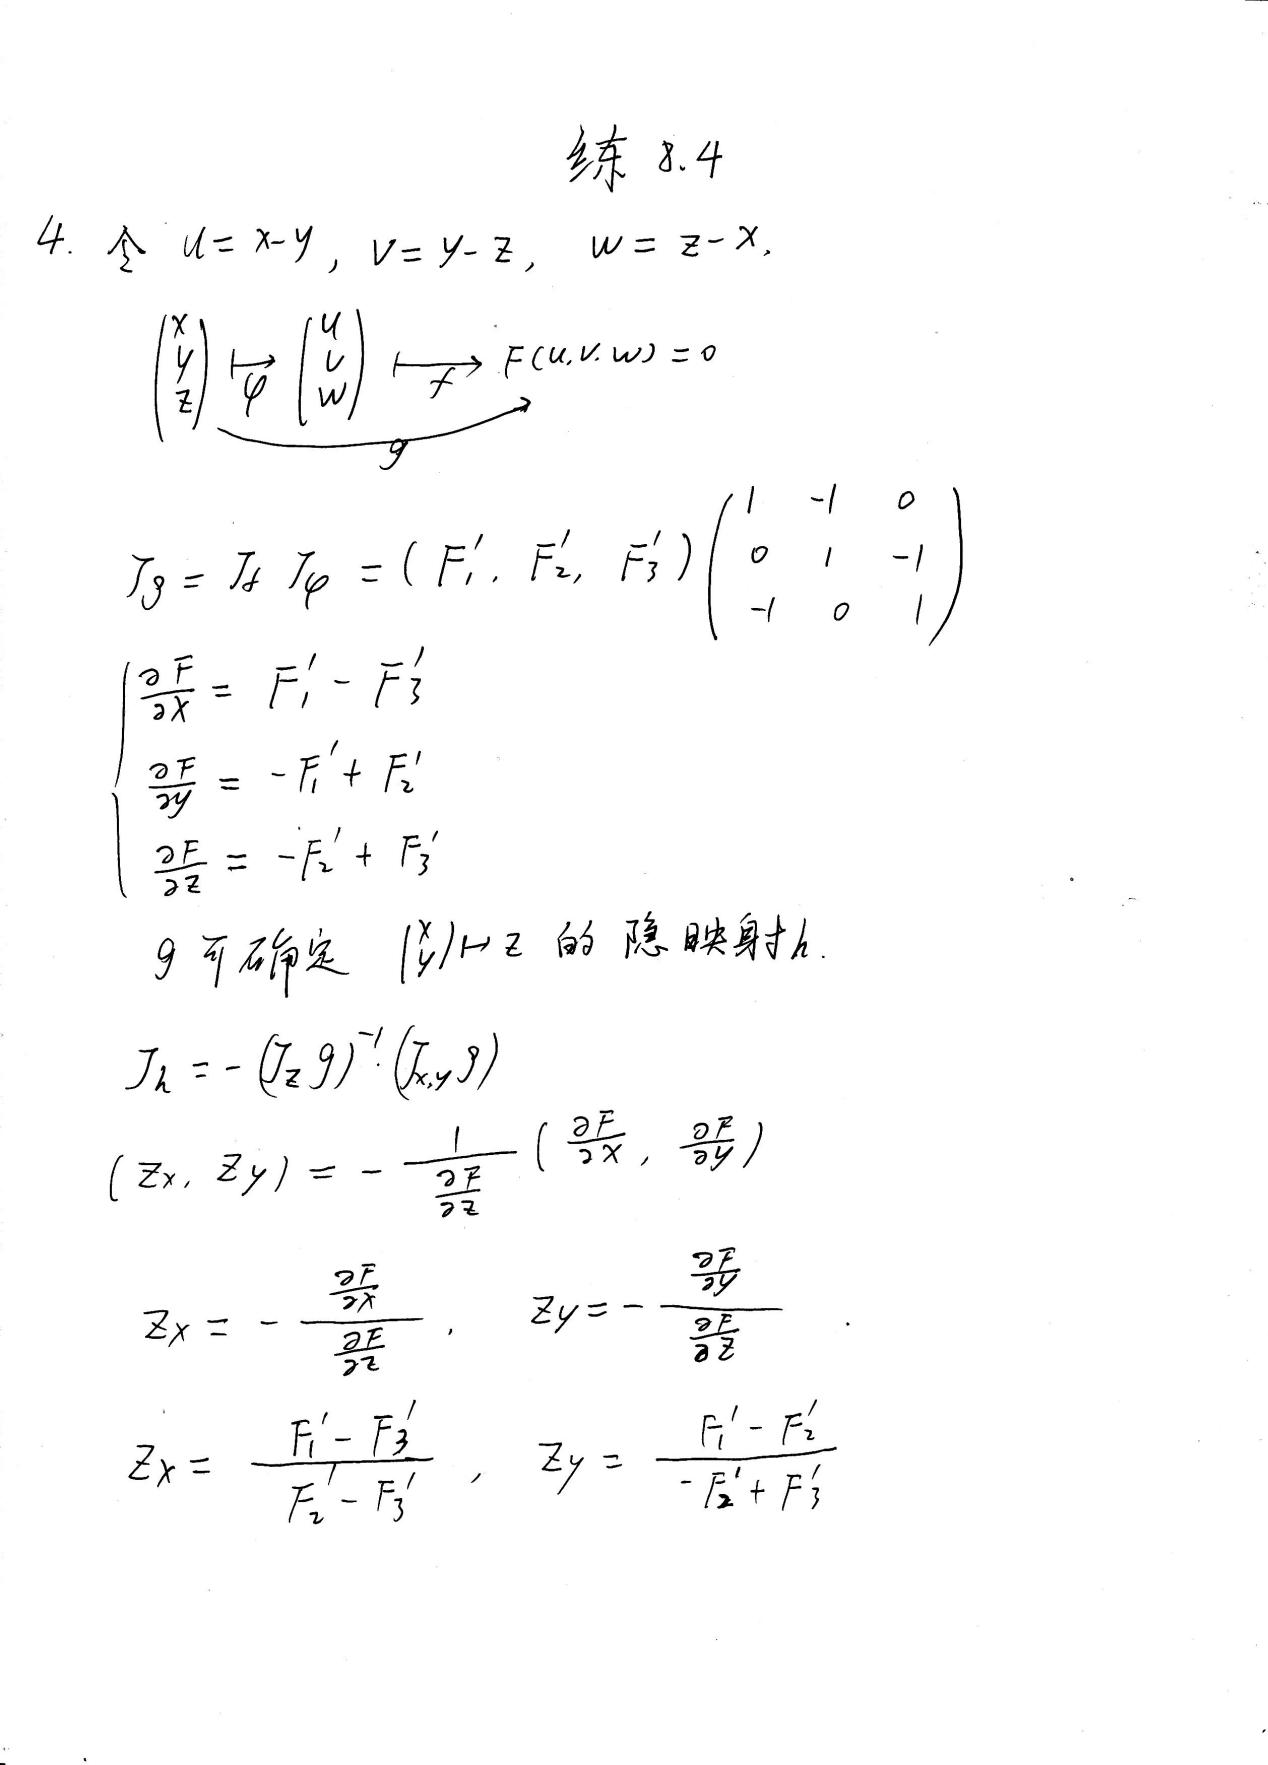 练 8.4
4. 令 u = x-y, v = y-z, w = z-x.
(x y z) ↦ φ (u v w) ↦ f F(u.v.w) = 0
g
Jg = Jf Jφ = (F₁′, F₂′, F₃′) (1 -1 0
0 1 -1
-1 0 1)
∂F/∂x = F₁′ - F₃′
∂F/∂y = -F₁′ + F₂′
∂F/∂z = -F₂′ + F₃′
g 可确定 (x y) ↦ z 的 隐映射h.
Jh = -(Jz g)⁻¹·(Jx,y g)
(Zx, Zy) = - 1/(∂F/∂z) (∂F/∂x, ∂F/∂y)
Zx = - (∂F/∂x)/(∂F/∂z), Zy = - (∂F/∂y)/(∂F/∂z).
Zx = (F₁′ - F₃′)/(F₂′ - F₃′), Zy = (F₁′ - F₂′)/(-F₂′ + F₃′)